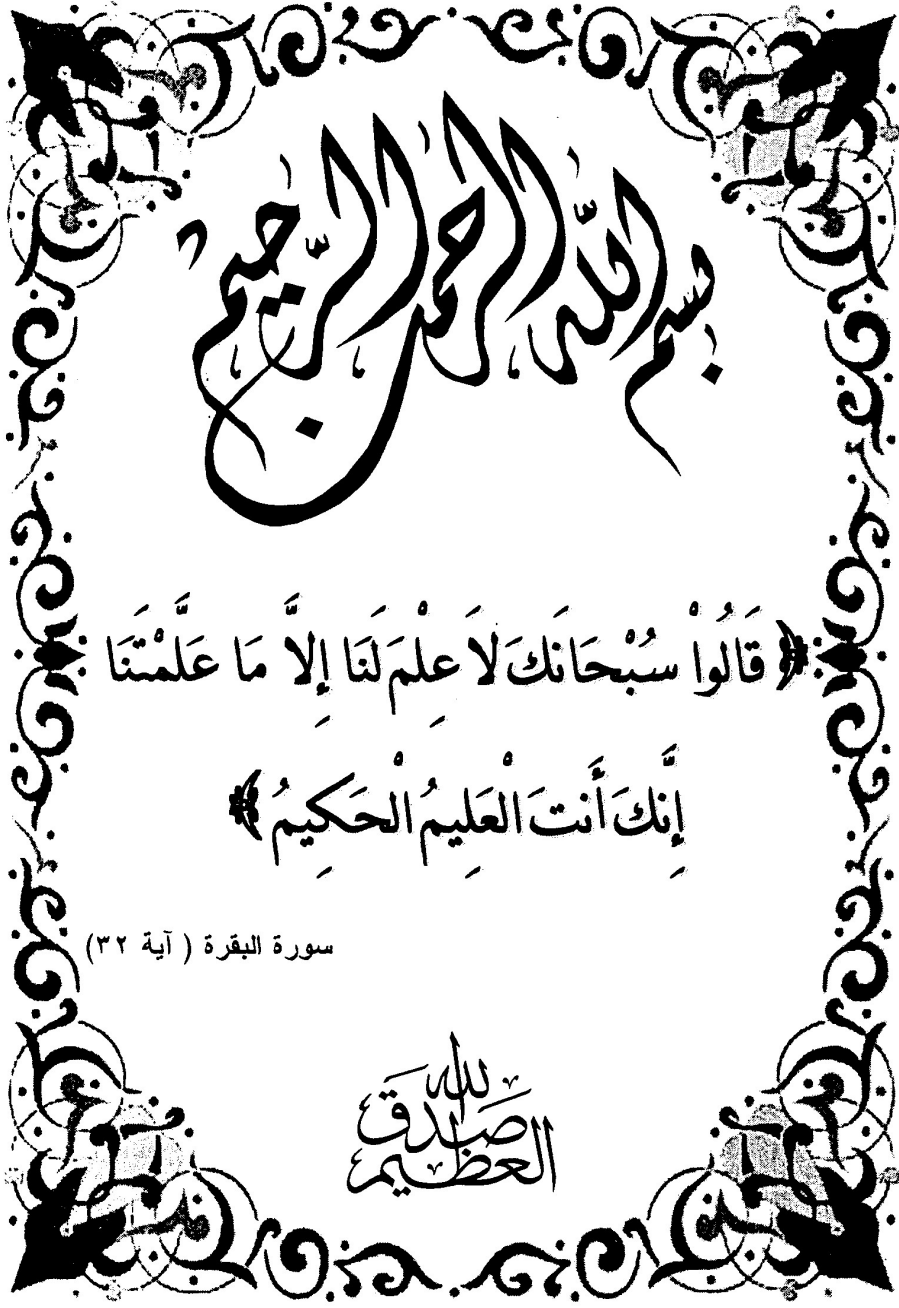 بسم الله الرحمن الرحيم
﴿ قَالُواْ سُبْحَانَكَ لاَ عِلْمَ لَنَا إِلاَّ مَا عَلَّمْتَنَا
إِنَّكَ أَنتَ الْعَلِيمُ الْحَكِيمُ ﴾
سورة البقرة ( آية ٣٢)
صدق الله
العظيم